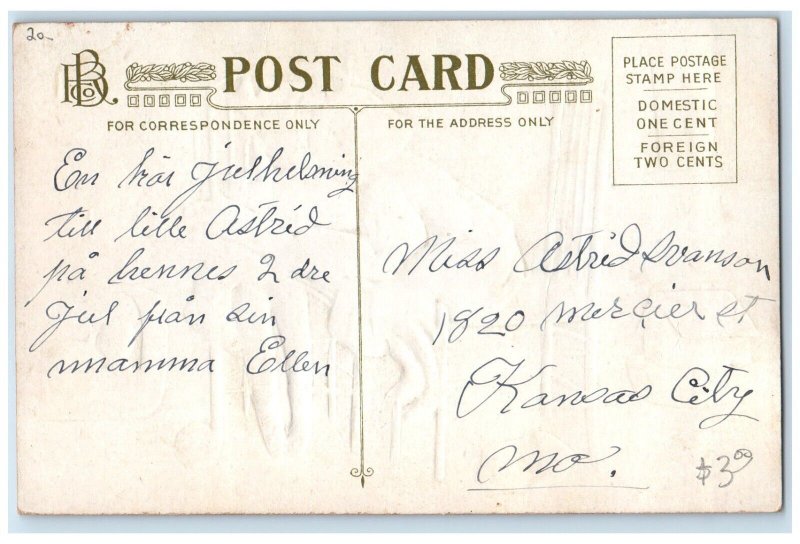 20-
POST CARD
FOR CORRESPONDENCE ONLY
FOR THE ADDRESS ONLY
PLACE POSTAGE
STAMP HERE
DOMESTIC
ONE CENT
FOREIGN
TWO CENTS
En kär Julhelsning
till lille Astrid
på hennes 2 dre
Jul från sin
mamma Ellen
Miss Astrid Svanson
1820 Mercier St
Kansas City
Mo.
$3.00